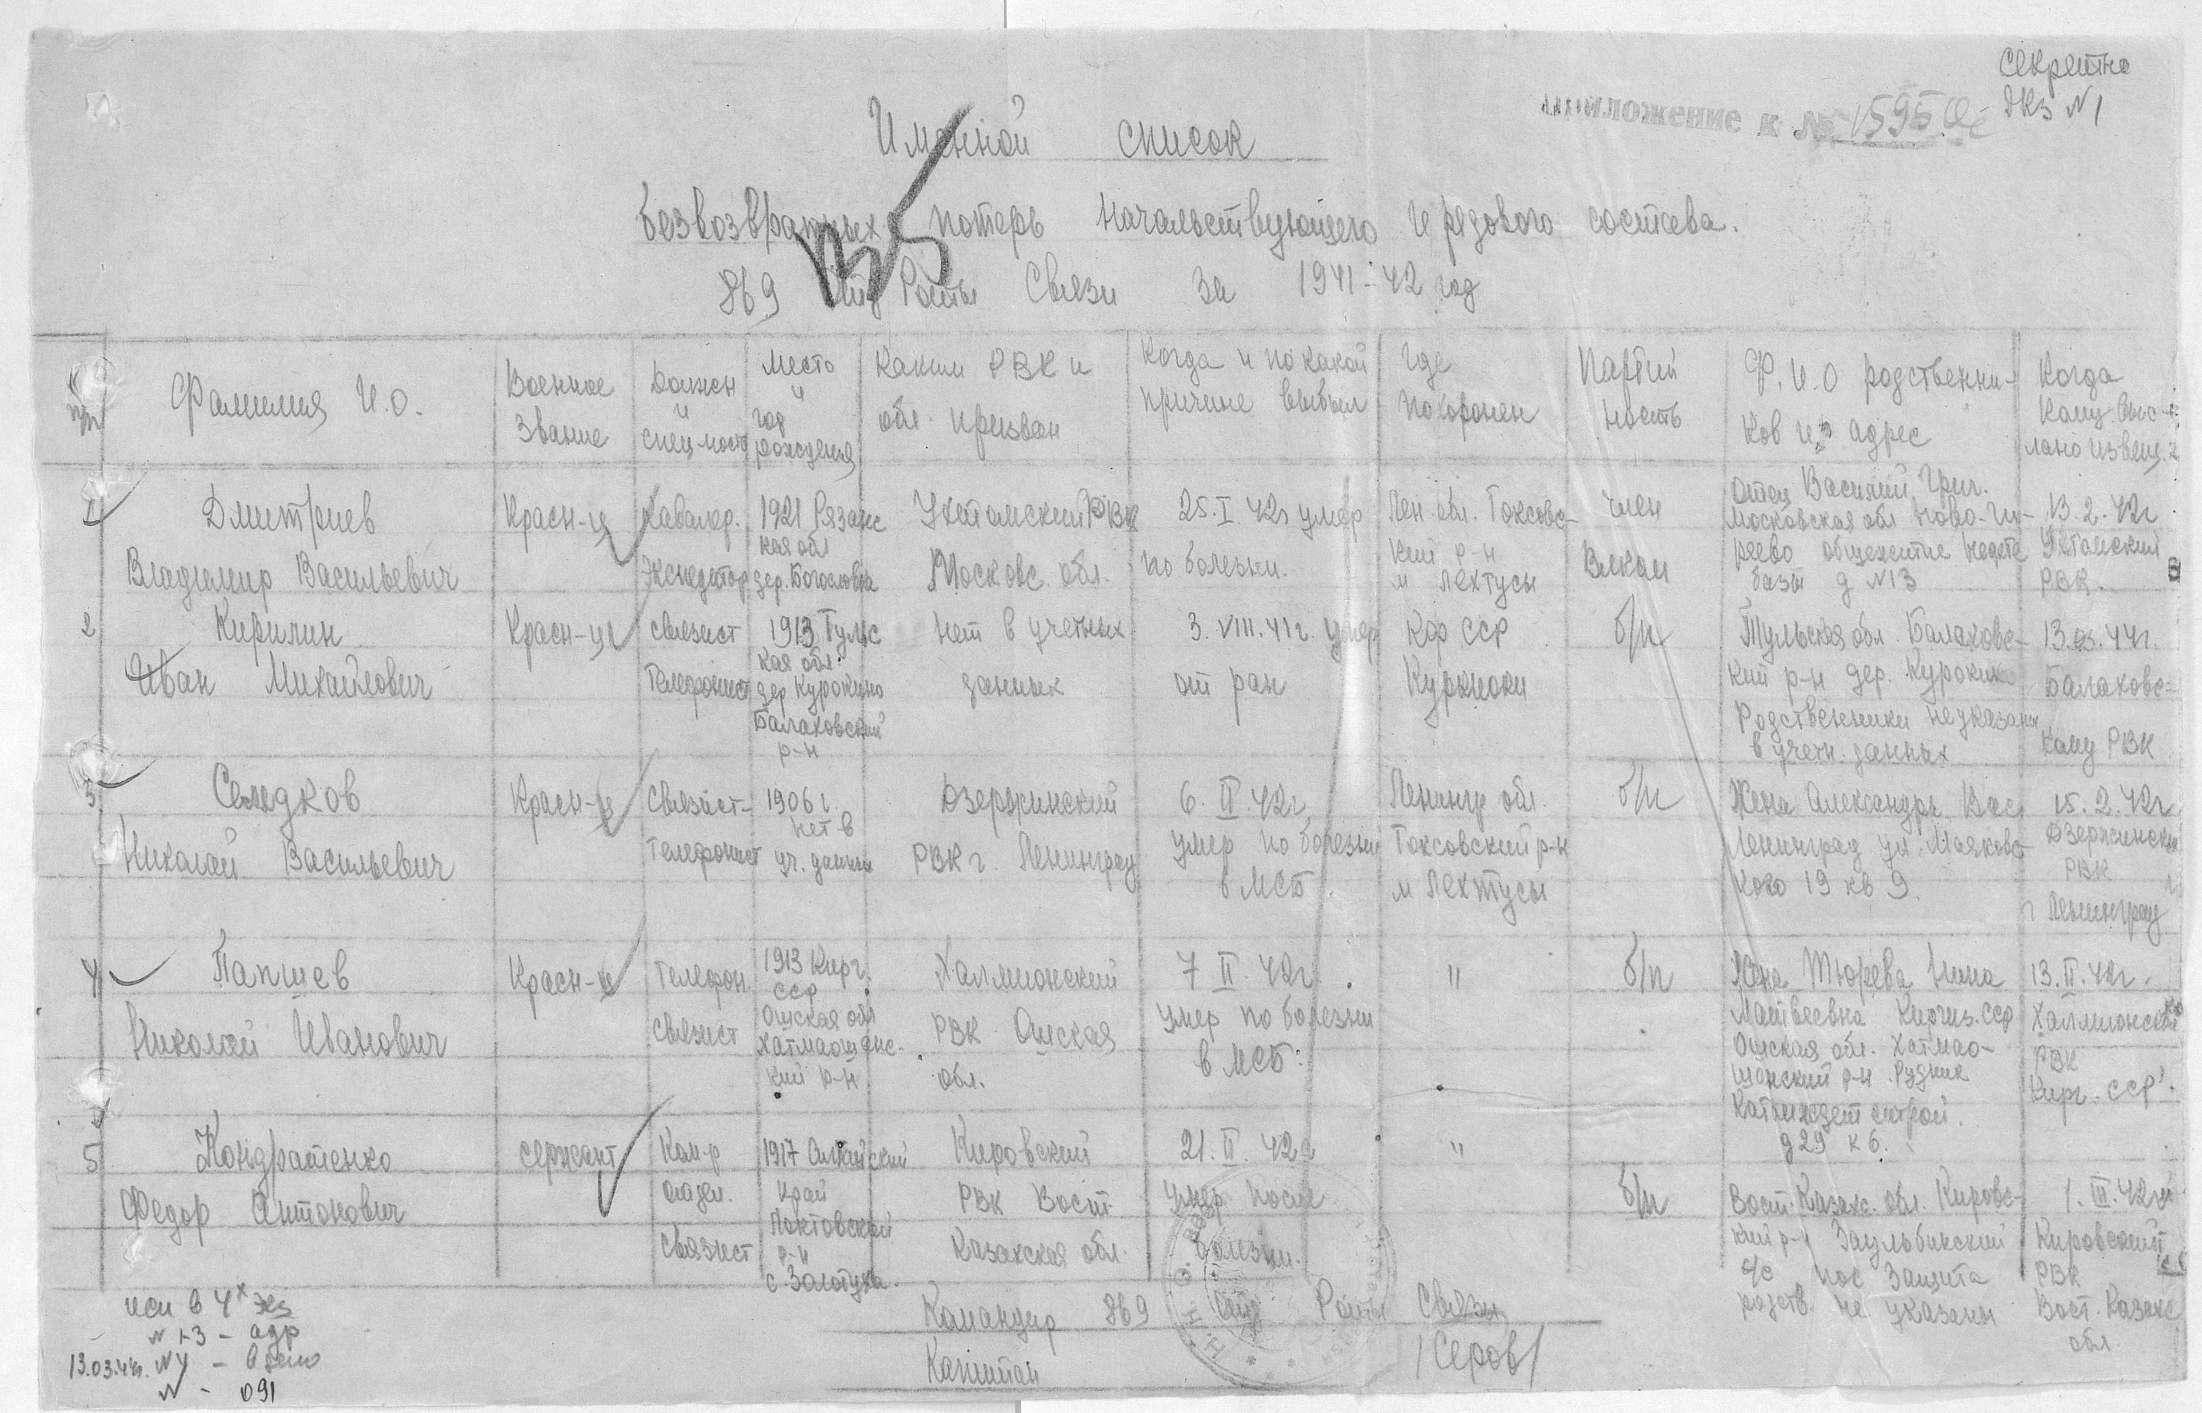 Секретно
Экз № 1
приложение к № 1595
Именной список
безвозвратных потерь начальствующего и рядового состава.
869 Роты Связи за 1941-42 год
№ п/п
Фамилия И.О.
Военное
звание
Должн
и
спец-ность
Место
и
год
рождения
Каким РВК и
обл. призван
Когда и по какой
причине выбыл
Где
похоронен
Партий
ность
Ф.И.О родственни-
ков и адрес
Когда
кому выс-
лано извещ.
1
Дмитриев
Владимир Васильевич
Красн-ц
Кавалер.
Экспедитор
1921 Рязанс
кая обл
дер. Богословка
Ухтомский РВК
Московс. обл.
25.I.42г умер
по болезни.
Лен обл. Токсовс-
кий р-н
м Лехтусы
член
Влксм
Отец Василий Григ.
Московская обл Ново-Ги-
реево общежитие
базы д №13
13.2.42г
Ухтомский
РВК.
2
Кирилин
Иван Михайлович
Красн-ц
связист
Телефонист
1913 Тульс
кая обл.
дер Курокино
Балаховский
р-н
Нет в учетных
данных
3.VIII.41г. умер
от ран
Кар ССР
Куркиоки
б/п
Тульская обл. Балаховс-
кий р-н дер. Курокино
Родственники не указаны
в учетн. данных
13.03.44г.
Балаховс-
кому РВК
3
Селедков
Николай Васильевич
Красн-ц
Связист-
Телефонист
1906 г.
нет в
уч. данных
Дзержинский
РВК г. Ленинград
6.II.42г
умер по болезни
в МСБ.
Ленингр обл.
Токсовский р-н
м Лехтусы
б/п
Жена Александра Вас.
Ленинград ул. Маяковс-
кого 19 кв 9.
15.2.42г
Дзержинский
РВК
г Ленинград
4
Папшев
Николай Иванович
Красн-ц
Телефон.
связист
1913 Кирг.
ССР
Ошская обл
кий р-н
Халмионский
РВК Ошская
обл.
7 II.42г.
умер по болезни
в МСБ.
"
б/п
Жена Тюрева Нина
Матвеевна Киргиз. ССР
Ошская обл.
р-н. Рудник
д 29 к 6.
13.II.42г.
Халмионский
РВК
Кирг. ССР.
5
Кондратенко
Федор Антонович
сержант
Ком-р
отдел.
связист
1917 Алтайский
край
Локтовский
р-н
с. Золотуха.
Кировский
РВК Вост.
Казахская обл.
21.II.42г
умер после
болезни.
"
б/п
Вост. Казахс. обл. Кировс-
кий р-н Заульбинский
с/с пос Защита
родств. не указаны
1.III.42г
Кировский
РВК
Вост. Казахс
обл.
Командир 869 Роты Связи
Капитан /Серов/
исп в 4х экз
№ 1-3 - адр
13.03.44г. № 4 - в дело
№ - 091